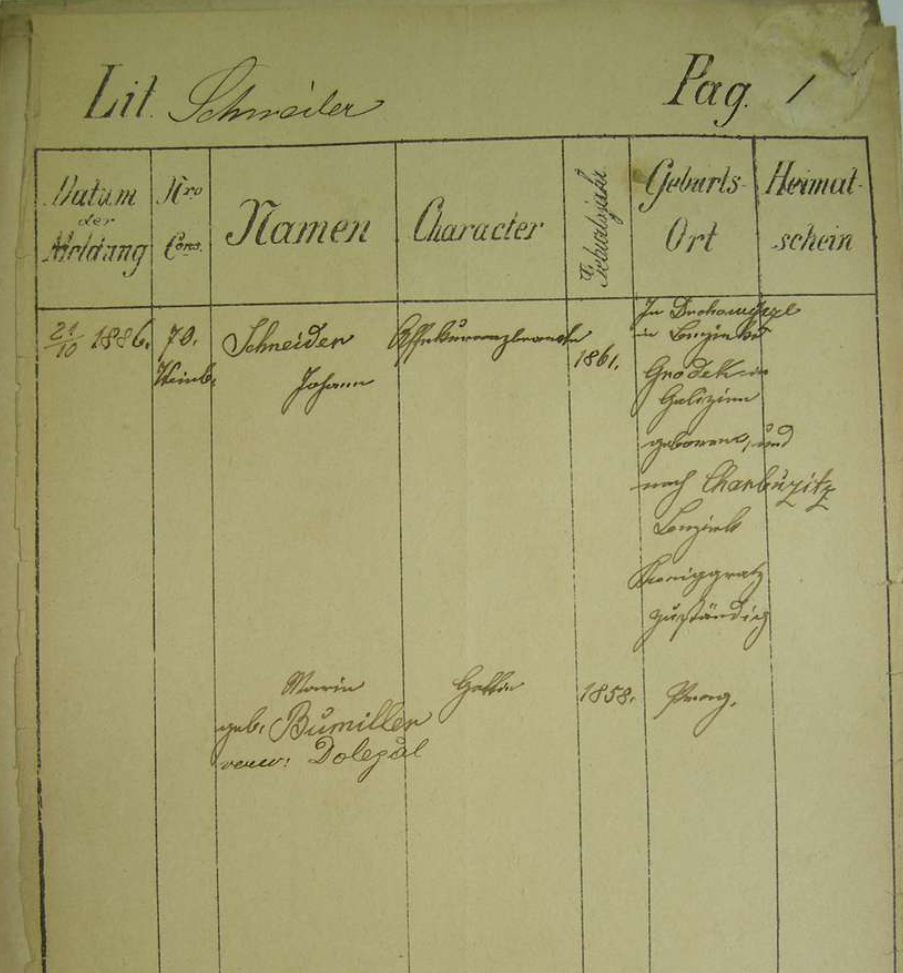 Lit. Schneider Pag. 1
Datum der Meldung
Nro Cons.
Namen
Character
Geburtsjahr
Geburts-Ort
Heimat-schein
21/10 1886. 70. Schneider 1861.
Weinb. Johann
in Bezirke
Grodek in
Galizien
geboren, und
nach Charbuzitz
Bezirk
Königgratz
zuständig
Marie Gattin 1858. Prag.
geb. Bumiller
verw: Dolezal